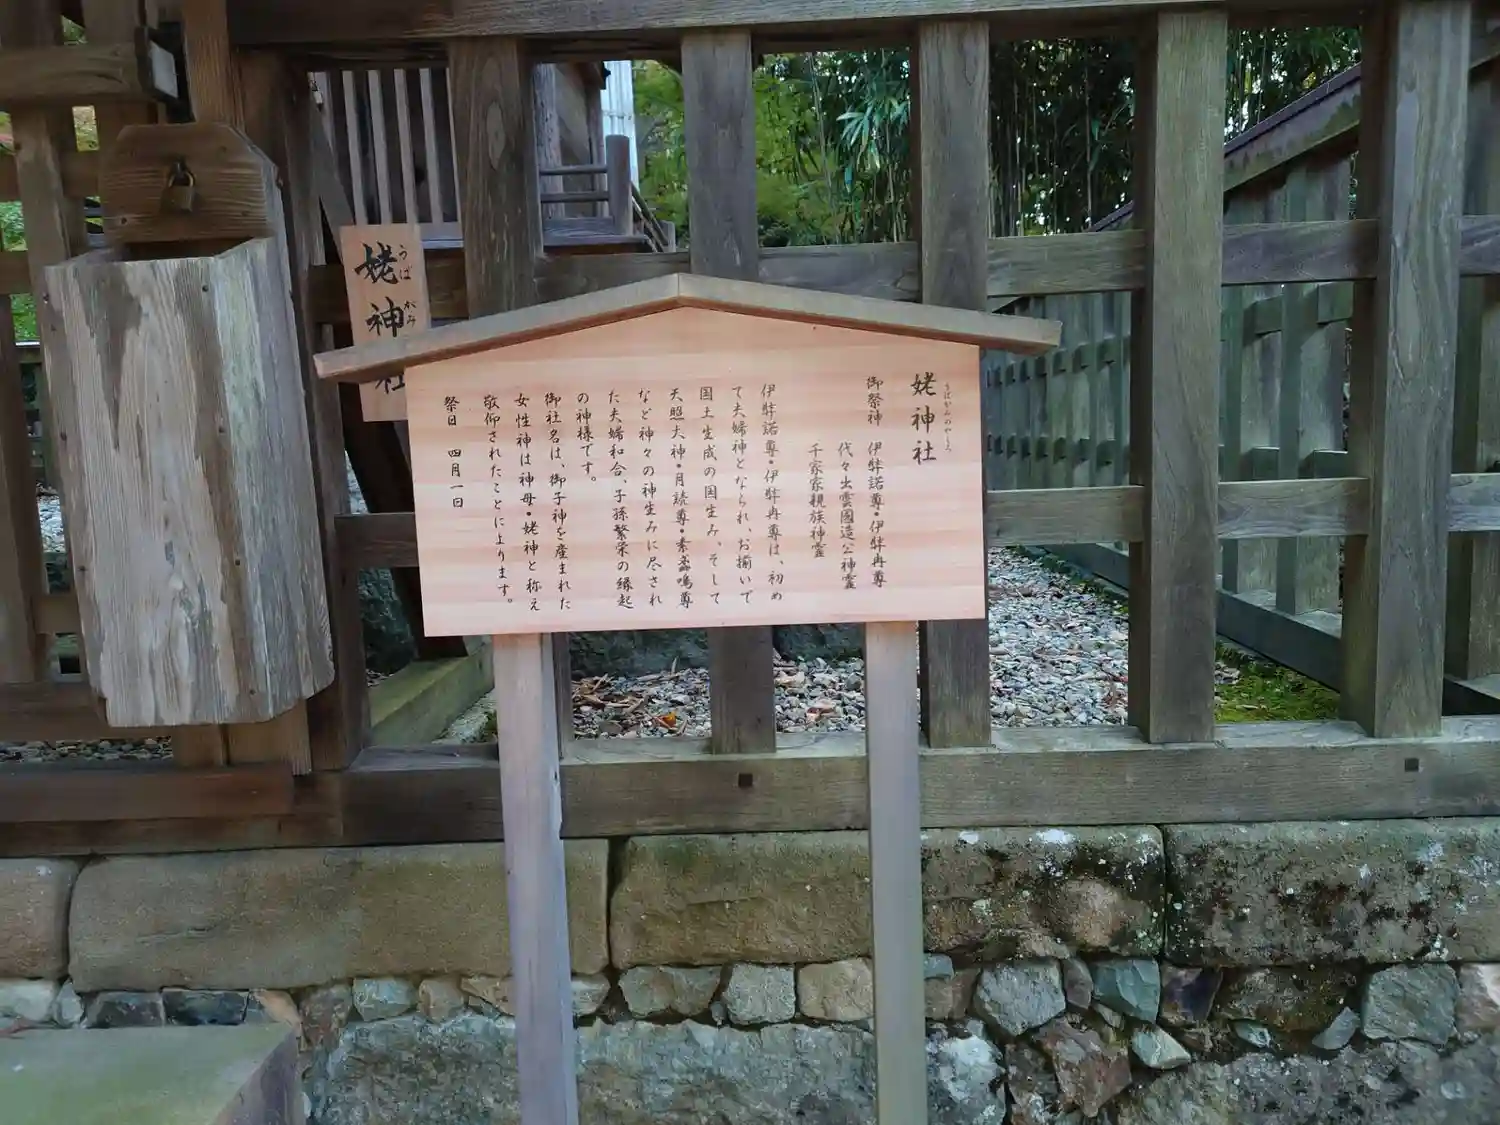 姥神社
うばがみのやしろ
御祭神　伊弉諾尊・伊弉冉尊
代々出雲國造公神霊
千家家親族神霊
伊弉諾尊・伊弉冉尊は、初め
て夫婦神となられ、お揃いで
国土生成の国生み、そして
天照大神・月読尊・素盞鳴尊
など神々の神生みに尽され
た夫婦和合、子孫繁栄の縁起
の神様です。
御社名は、御子神を産まれた
女性神は神母・姥神と称え
敬仰されたことによります。
祭日　四月一日
姥神社
うばがみ